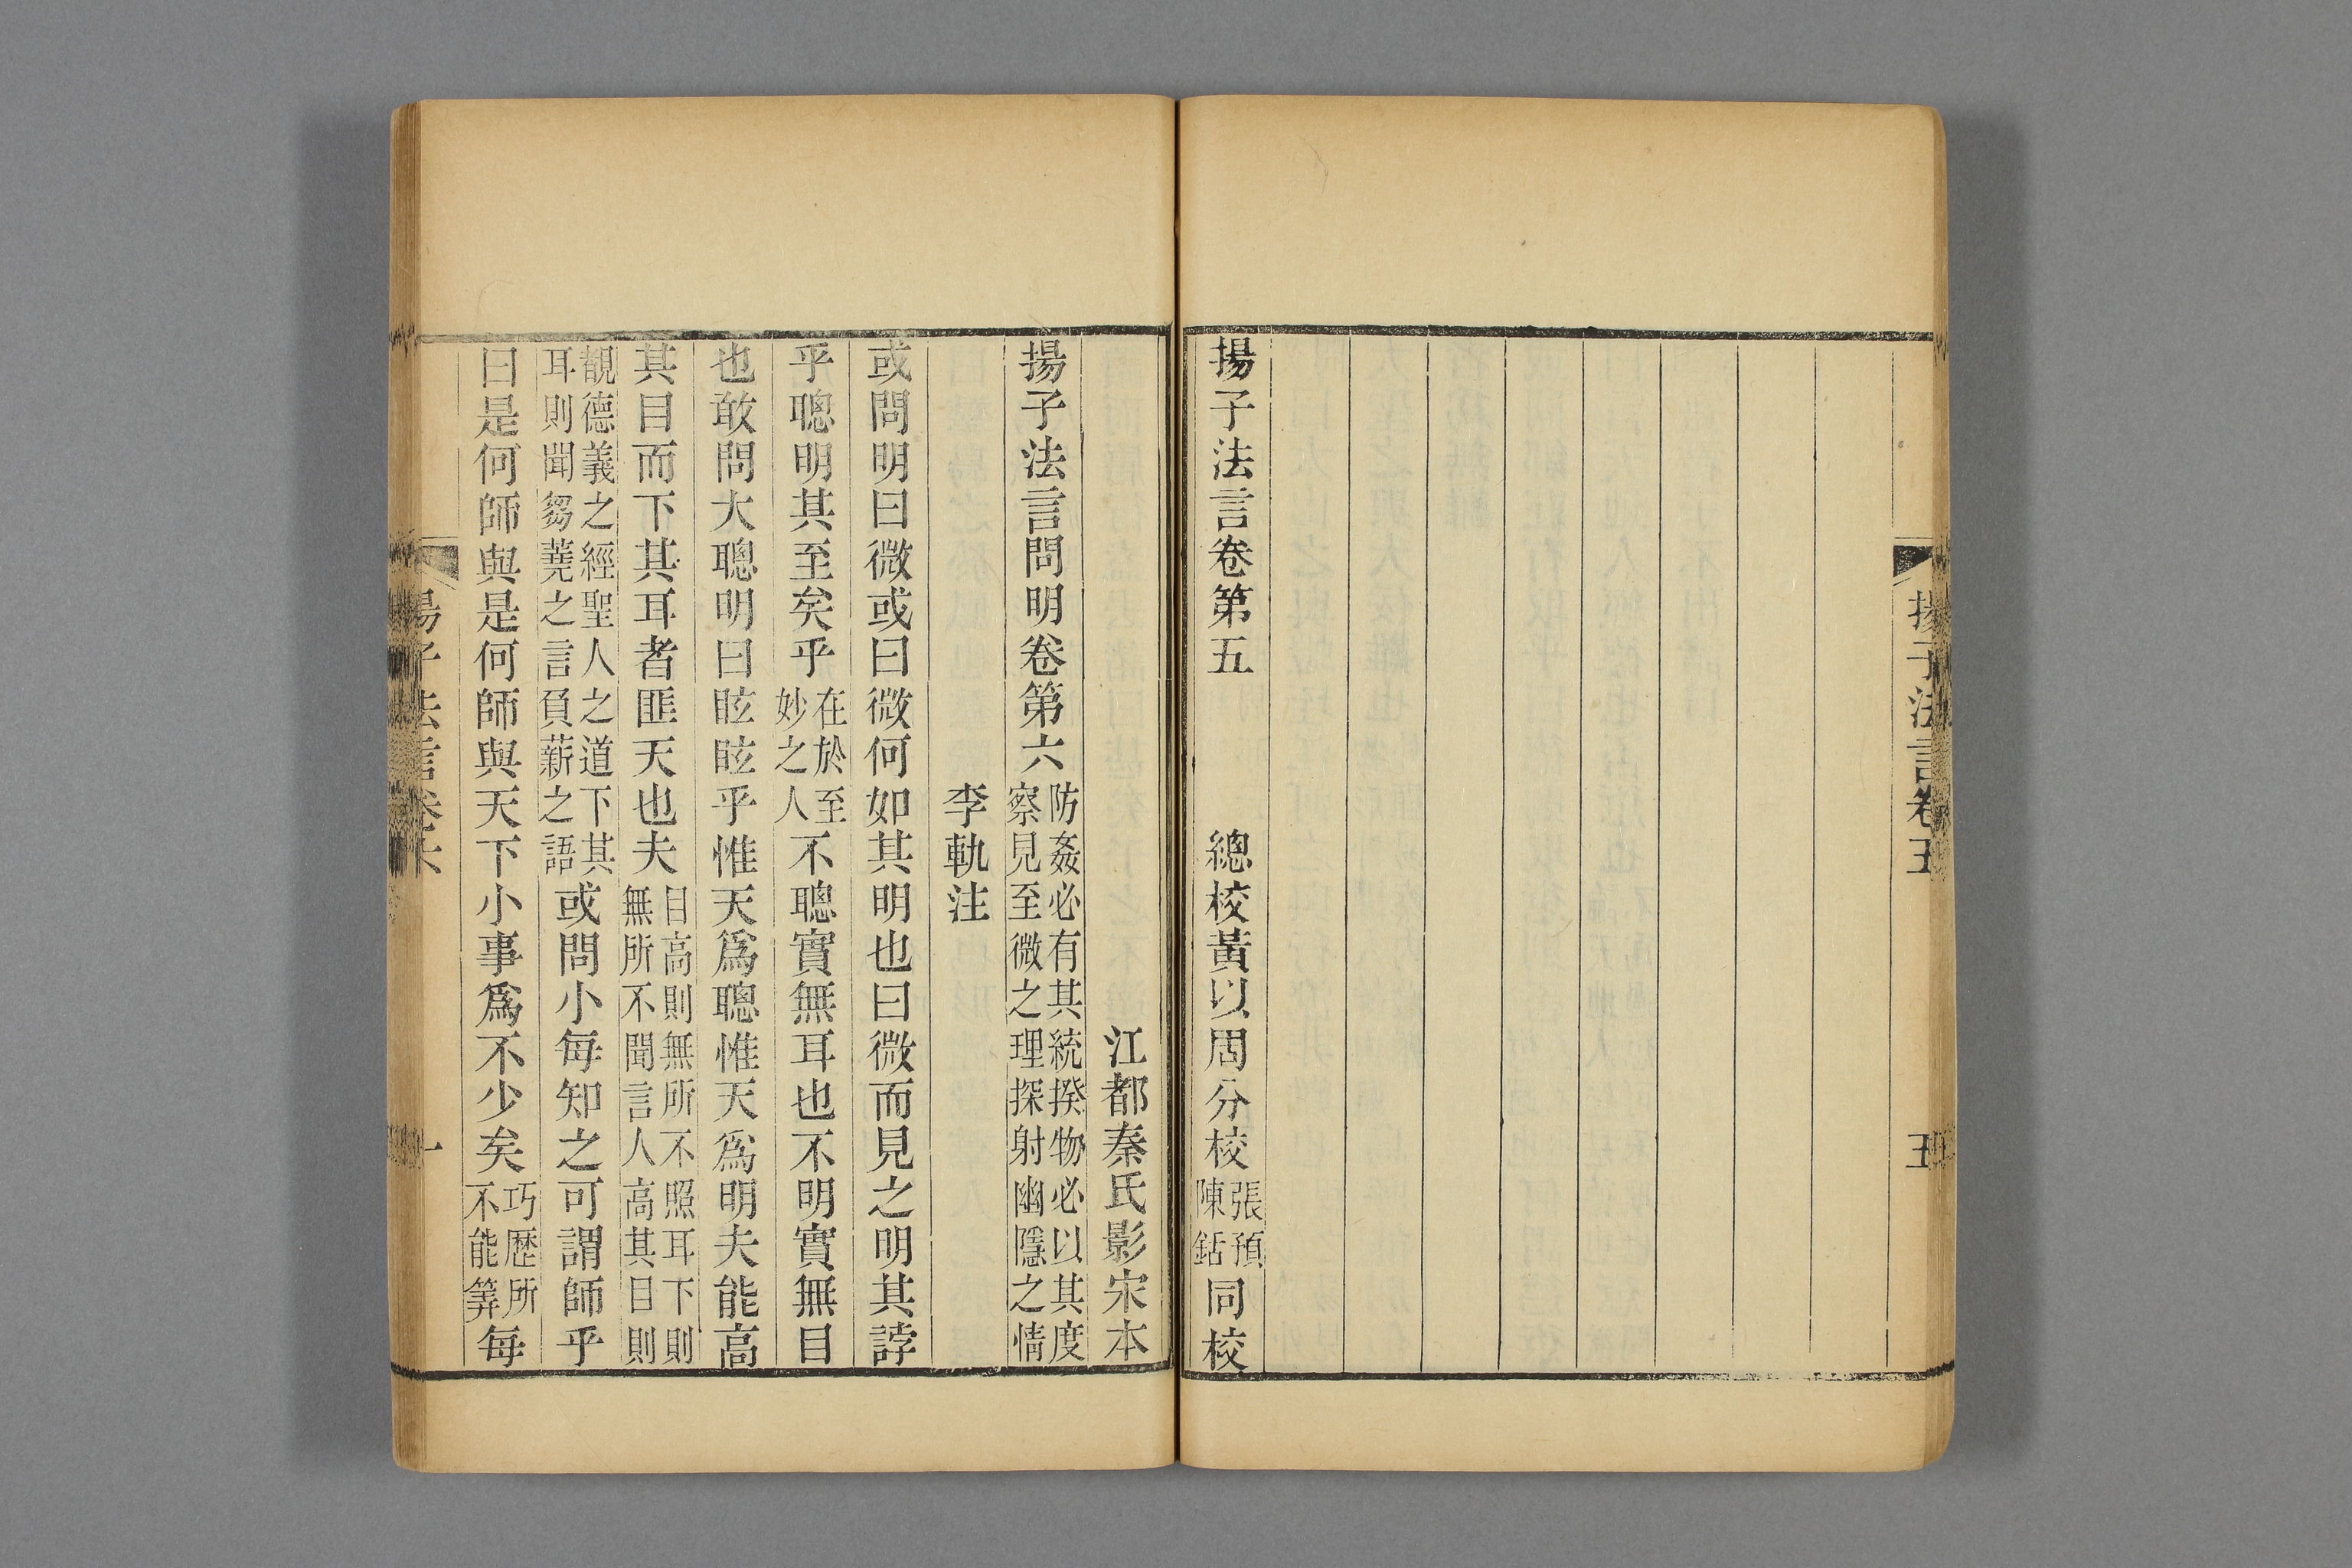 揚子法言卷五
五
揚子法言卷第五　總校黃以周分校張預陳銛同校
江都秦氏影宋本
揚子法言問明卷第六防姦必有其統揆物必以其度察見至微之理探射幽隱之情
李軌注
或問明曰微或曰微何如其明也曰微而見之明其誖
乎聰明其至矣乎在於至妙之人不聰實無耳也不明實無目
也敢問大聰明曰眩眩乎惟天爲聰惟天爲明夫能高
其目而下其耳者匪天也夫目高則無所不照耳下則無所不聞言人高其目則
覩德義之經聖人之道下其耳則聞芻蕘之言負薪之語或問小每知之可謂師乎
曰是何師與是何師與天下小事爲不少矣巧歷所不能筭每
揚子法言卷六
一